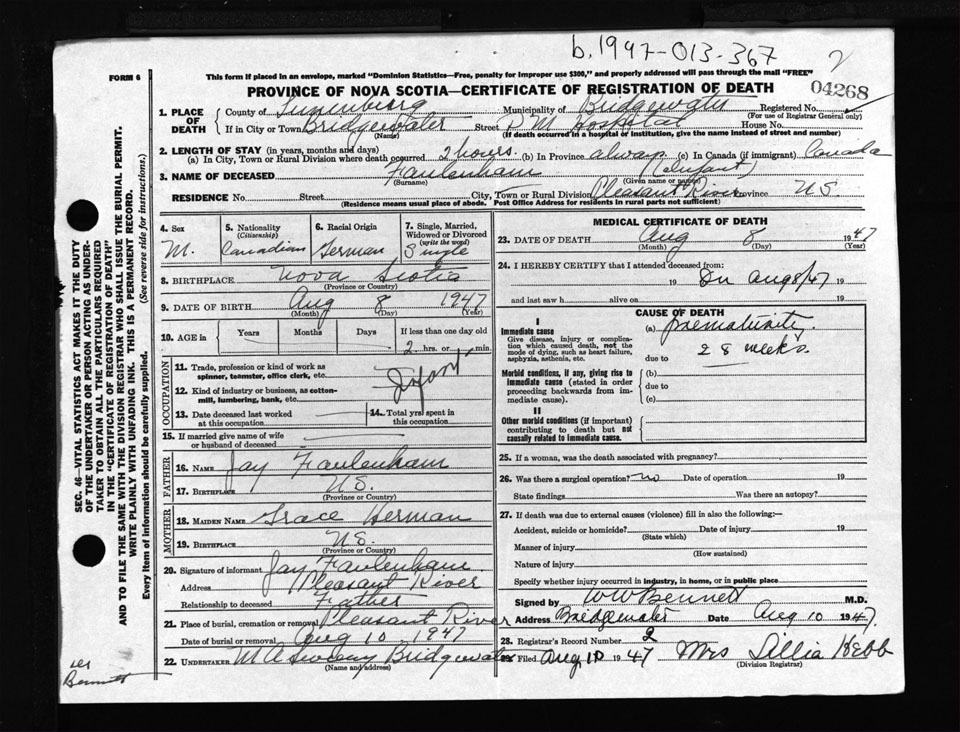 b.1947-013-367
2
FORM 6
This form if placed in an envelope, marked "Dominion Statistics—Free, penalty for improper use $300," and properly addressed will pass through the mail "FREE"
PROVINCE OF NOVA SCOTIA—CERTIFICATE OF REGISTRATION OF DEATH
04268
1. PLACE OF DEATH
County of Lunenburg Municipality of Bridgewater Registered No.
(For use of Registrar General only)
If in City or Town Bridgewater Street D M Hospital House No.
(Name) (If death occurred in a hospital or institution, give the name instead of street and number)
2. LENGTH OF STAY (in years, months and days)
(a) In City, Town or Rural Division where death occurred 2 hours. (b) In Province always (c) In Canada (if immigrant) Canada
3. NAME OF DECEASED Faulenham (Infant)
(Surname) (Given name or names)
RESIDENCE No. Street City, Town or Rural Division Pleasant River Province N.S.
(Residence means usual place of abode. Post Office Address for residents in rural parts not sufficient)
4. Sex
M.
5. Nationality (Citizenship)
Canadian
6. Racial Origin
German
7. Single, Married, Widowed or Divorced (write the word)
Single
8. BIRTHPLACE Nova Scotia
(Province or Country)
9. DATE OF BIRTH Aug 8 1947
(Month) (Day) (Year)
10. AGE in Years Months Days If less than one day old
2 hrs. or min.
OCCUPATION
11. Trade, profession or kind of work as spinner, teamster, office clerk, etc.
12. Kind of industry or business, as cotton-mill, lumbering, bank, etc.
Infant
13. Date deceased last worked at this occupation
14. Total yrs spent in this occupation
15. If married give name of wife or husband of deceased
FATHER
16. NAME Jay Faulenham
17. BIRTHPLACE N.S.
(Province or Country)
MOTHER
18. MAIDEN NAME Grace Herman
19. BIRTHPLACE N.S.
(Province or Country)
20. Signature of informant Jay Faulenham
Address Pleasant River
Relationship to deceased Father
21. Place of burial, cremation or removal Pleasant River
Date of burial or removal Aug 10 1947
22. UNDERTAKER M A Sweeny Bridgewater
(Name and address)
MEDICAL CERTIFICATE OF DEATH
23. DATE OF DEATH Aug 8 1947
(Month) (Day) (Year)
24. I HEREBY CERTIFY that I attended deceased from:
19 On Aug 8/47
and last saw h alive on 19
CAUSE OF DEATH
I
Immediate cause
Give disease, injury or complication which caused death, not the mode of dying, such as heart failure, asphyxia, asthenia, etc.
(a) prematurity.
28 weeks.
due to
Morbid conditions, if any, giving rise to immediate cause (stated in order proceeding backwards from immediate cause).
(b)
due to
(c)
II
Other morbid conditions (if important) contributing to death but not causally related to immediate cause.
25. If a woman, was the death associated with pregnancy?
26. Was there a surgical operation? no Date of operation 19
State findings Was there an autopsy?
27. If death was due to external causes (violence) fill in also the following:—
Accident, suicide or homicide? Date of injury 19
(State which)
Manner of injury
(How sustained)
Nature of injury
Specify whether injury occurred in industry, in home, or in public place
Signed by W W Bennett M.D.
Address Bridgewater Date Aug 10 1947.
28. Registrar's Record Number 2
Filed Aug. 10 1947 Mrs Lillia Hebb
(Division Registrar)
SEC. 46—VITAL STATISTICS ACT MAKES IT THE DUTY
OF THE UNDERTAKER OR PERSON ACTING AS UNDER-
TAKER TO OBTAIN ALL THE PARTICULARS REQUIRED
IN THE "CERTIFICATE OF REGISTRATION OF DEATH"
AND TO FILE THE SAME WITH THE DIVISION REGISTRAR WHO SHALL ISSUE THE BURIAL PERMIT.
WRITE PLAINLY WITH UNFADING INK. THIS IS A PERMANENT RECORD.
Every item of information should be carefully supplied. (See reverse side for instructions.)
Bennett